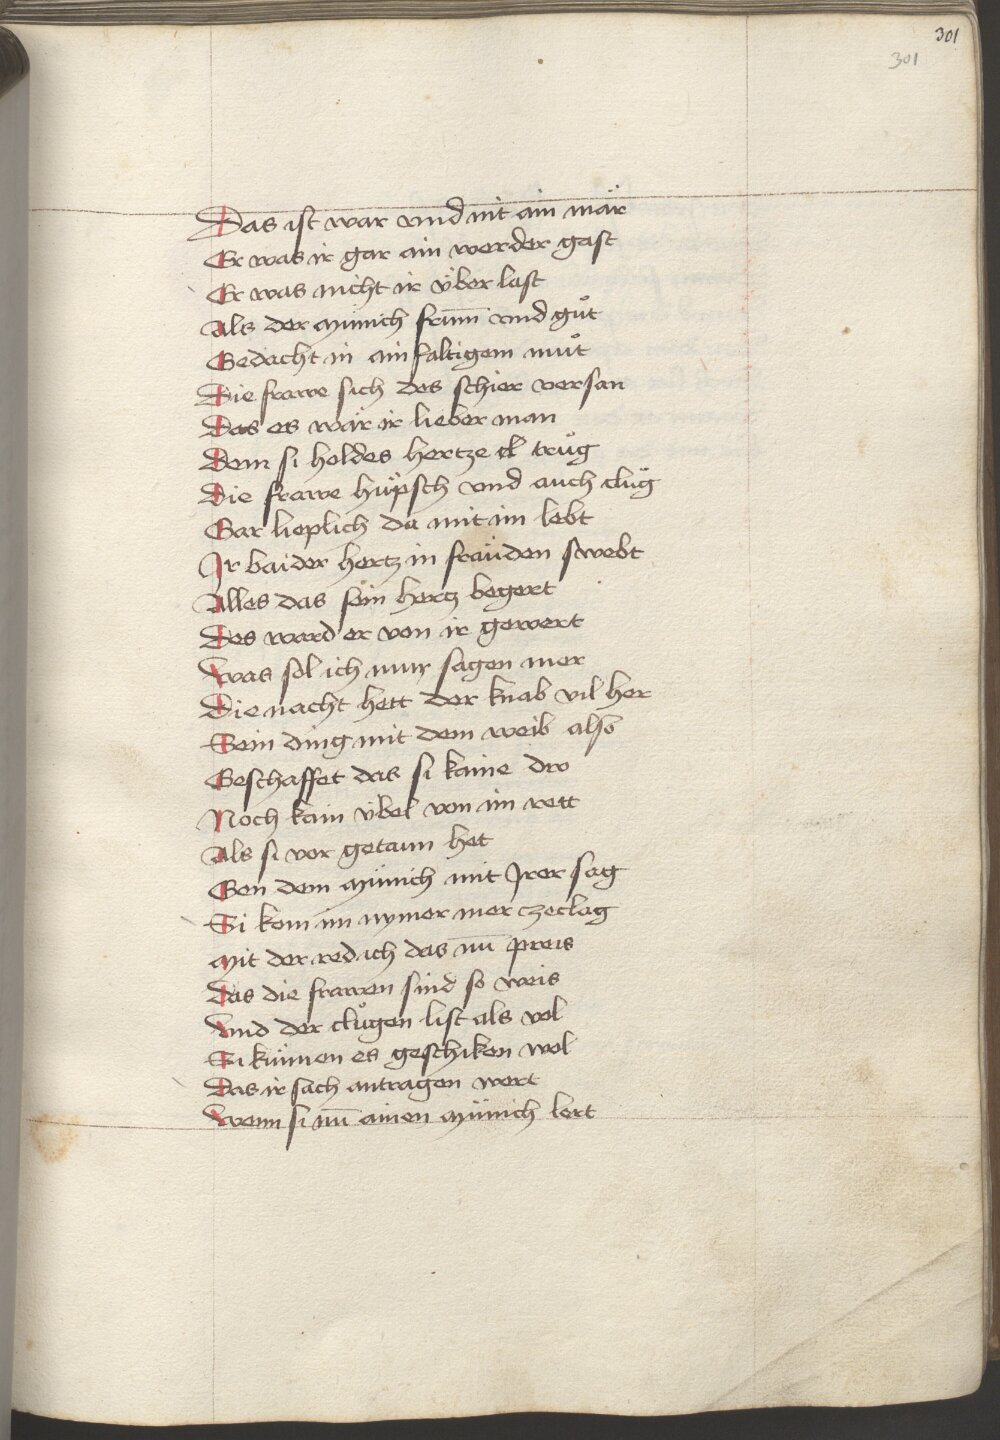 301
301
Das ist war vnd nit ain mär
Er was ir gar ain werder gast
Er was nicht ir über last
Als der münich frum̄ vnd gůt
Gedacht in ainfaltigem můt
Die frawe sich des schier versan
Das es wär ir lieber man
Dem si holdes hertze trůg
Die frawe hüpsch vnd auch clůg
Gar lieplich da mit im lebt
Ir baider hertz in fräuden swebt
Alles das sein hertz begert
Des ward er von ir gewert
Was sol ich nun sagen mer
Die nacht hett der knab vil her
Sein ding mit dem weib also
Geschaffet das si kaine dro
Noch kain übel von im rett
Als si vor getann het
Gen dem münich mit Irer sag
Si kom im nymer mer zeclag
Mit der red ich das nū preis
Das die frawen sind so weis
Vnd der clůgen list als vol
Si künnen es geschiken wol
Das ir sach antragen wert
Wenn si nū ainen münich lert